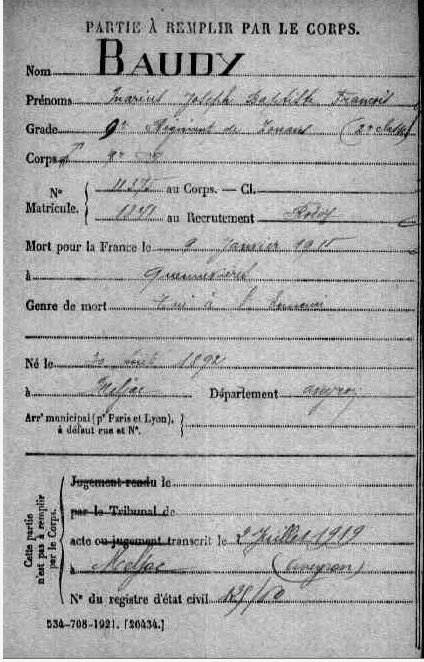 PARTIE À REMPLIR PAR LE CORPS.
Nom BAUDY
Prénoms Marius Joseph Baptiste François
Grade 9e Régiment de Zouaves (2e classe)
Corps 9e
N° Matricule. { au Corps. — Cl.
au Recrutement Rodez
Mort pour la France le 9 Janvier 1915
à
Genre de mort Tué à l'Ennemi
Né le 20 août 1892
à Meljac Département Aveyron
Arrt municipal (pr Paris et Lyon), à défaut rue et N°. }
Cette partie n'est pas à remplir par le Corps. {
Jugement rendu le
par le Tribunal de
acte ou jugement transcrit le 2 Juillet 1919
à Meljac (Aveyron)
N° du registre d'état civil
534-708-1921. [26434.]